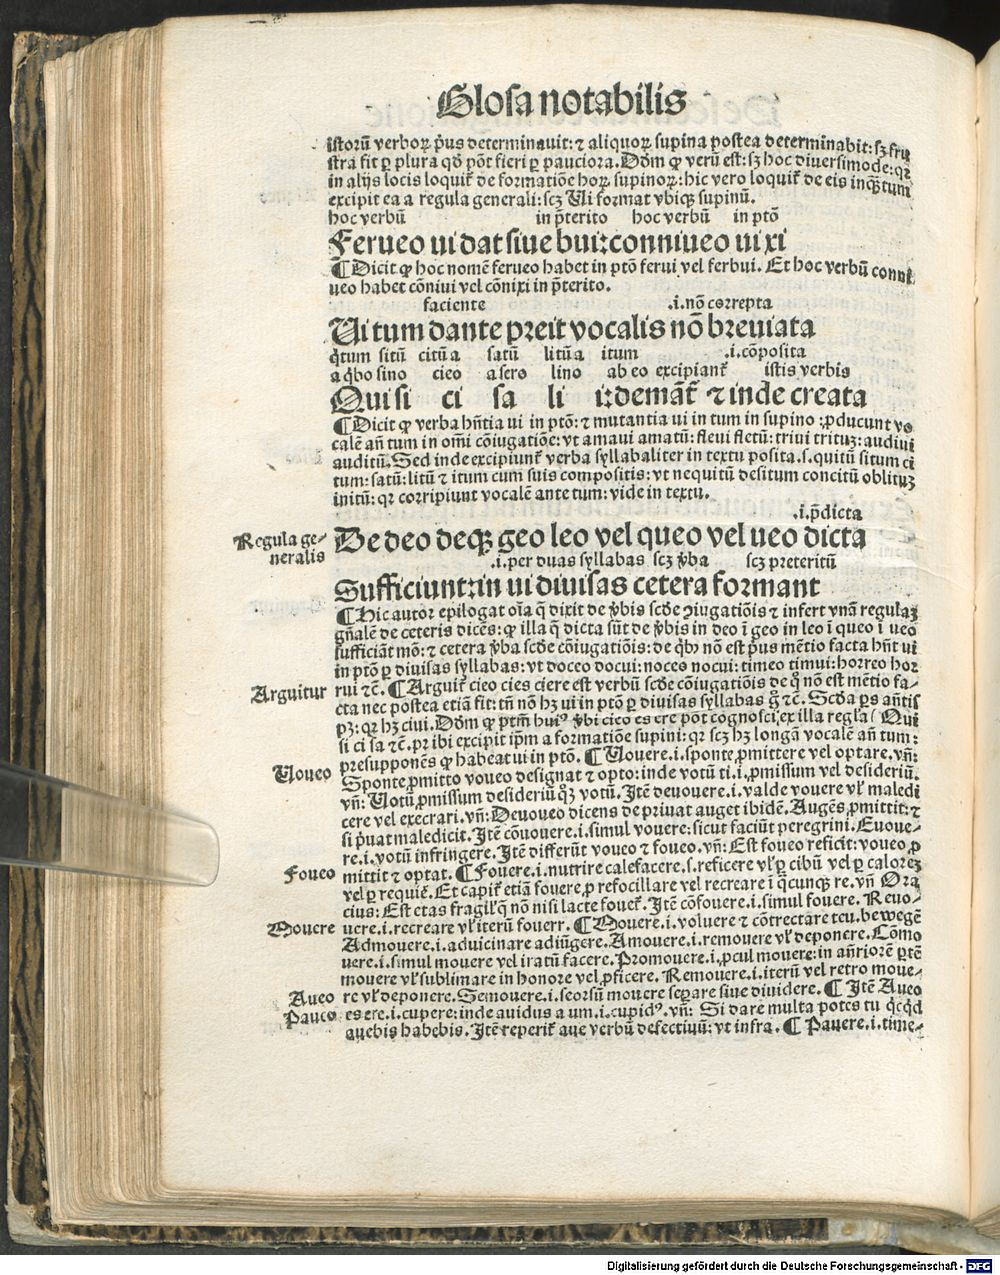 Glosa notabilis
istorũ verboꝝ pͥus determinauit: ⁊ aliquoꝝ supina postea determinabit: sꝫ fru
stra fit ꝑ plura qđ pōt fieri ꝑ pauciora. Dōm ꝙ verũ est: sꝫ hoc diuersimode: qꝛ
in alijs locis loquit̃ de formatiõe hoꝝ supinoꝝ: hic vero loquit̃ de eis inqꝫtum
excipit ea a regula generali: scꝫ Vi format vbiqꝫ supinũ.
hoc verbũ in p̃terito hoc verbũ in ptõ
Ferueo ui dat siue bui: conniueo ui xi
¶ Dicit ꝙ hoc nomẽ ferueo habet in ptõ ferui vel ferbui. Et hoc verbũ conni
ueo habet cõniui vel cõnixi in p̃terito.
faciente .i. nõ correpta
Vi tum dante preit vocalis nõ breuiata
q̃tum sitũ citũ a satũ litũ a itum .i. cõposita
a q̃bo sino cieo a sero lino ab eo excipiant̃ istis verbis
Qui si ci sa li i: demãt̃ ⁊ inde creata
¶ Dicit ꝙ verba hñtia ui in ptõ: ⁊ mutantia ui in tum in supino: ꝓducunt vo
calẽ añ tum in oĩ cõiugatiõe: vt amaui amatũ: fleui fletũ: triui trituꝫ: audiui
auditũ. Sed inde excipiunt̃ verba syllabaliter in textu posita .s. quitũ situm ci
tum: satũ: litũ ⁊ itum cum suis compositis: vt nequitũ desitum concitũ oblituꝫ
initũ: qꝛ corripiunt vocalẽ ante tum: vide in textu.
.i. p̃dicta
Regula ge-
neralis
De deo deqꝫ geo leo vel queo vel ueo dicta
.i. per duas syllabas scꝫ v̾ba scꝫ preteritũ
Sufficiunt: in ui diuisas cetera formant
¶ Hic autor epilogat oĩa q̃ dixit de v̾bis scđe ꝯiugatiõis ⁊ infert vnã regulaꝫ
gñalẽ de ceteris dicẽs: ꝙ illa q̃ dicta sũt de v̾bis in deo ĩ geo in leo ĩ queo ĩ ueo
sufficiãt mõ: ⁊ cetera v̾ba scđe cõiugatiõis: de q̃bꝰ nõ est pͥus mẽtio facta hñt ui
in ptõ ꝑ diuisas syllabas: vt doceo docui: noces nocui: timeo timui: horreo hor
Arguitur
rui ⁊c̃. ¶ Arguit̃ cieo cies ciere est verbũ scđe cõiugatiõis de q̃ nõ est mẽtio fa-
cta nec postea etiã fit: tñ nõ hꝫ ui in ptõ ꝑ diuisas syllabas g̃ ⁊c̃. Scđa ꝑs añtis
pꝫ: qꝛ hꝫ ciui. Dōm ꝙ ptm̃ huiꝰ v̾bi cieo es ere pōt cognosci ex illa regl̃a (Qui
si ci sa ⁊c̃. pr ibi excipit ip̃m a formatiõe supini: qꝛ scꝫ hꝫ longã vocalẽ añ tum:
Voueo
presupponẽs ꝙ habeat ui in ptõ. ¶ Vouere .i. sponte ꝓmittere vel optare. vñ:
Sponte ꝓmitto voueo designat ⁊ opto: inde votũ ti .i. ꝓmissum vel desideriũ.
vñ: Votũ ꝓmissum desideriũ q̃ꝫ votũ. Itẽ deuouere .i. valde vouere vl̃ maledi
cere vel execrari. vñ: Deuoueo dicens de priuat auget ibidẽ. Augẽs ꝓmittit: ⁊
si pͥuat maledicit. Itẽ cõuouere .i. simul vouere: sicut faciũt peregrini. Euoue-
re .i. votũ infringere. Itẽ differũt voueo ⁊ foueo. vñ: Est foueo reficit: voueo ꝓ
Foueo
mittit ⁊ optat. ¶ Fouere .i. nutrire calefacere .s. reficere vl̃ ꝑ cibũ vel ꝑ caloreꝫ
vel ꝑ requiẽ. Et capit̃ etiã fouere ꝓ refocillare vel recreare ĩ q̃cunqꝫ re. vñ Ora
cius: Est etas fragil̃ q̃ nõ nisi lacte fouet̃. Itẽ cõfouere .i. simul fouere. Refo-
Mouere
uere .i. recreare vl̃ iterũ fouere. ¶ Mouere .i. voluere ⁊ cõtrectare teu. bewegẽ
Admouere .i. aduicinare adiũgere. Amouere .i. remouere vl̃ deponere. Cõmo
uere .i. simul mouere vel iratũ facere. Promouere .i. ꝓcul mouere: in añriorẽ ꝑtẽ
mouere vl̃ sublimare in honore vel ꝓficere. Remouere .i. iterũ vel retro moue-
Aueo
re vl̃ deponere. Semouere .i. seorsũ mouere separe siue diuidere. ¶ Itẽ Aueo
Paueo
es ere .i. cupere: inde auidus a um .i. cupidꝰ. vñ: Si dare multa potes tu q̃cq̃d
auebis habebis. Itẽ reperit̃ aue verbũ defectiuũ: vt infra. ¶ Pauere .i. time-
Digitalisierung gefördert durch die Deutsche Forschungsgemeinschaft - DFG